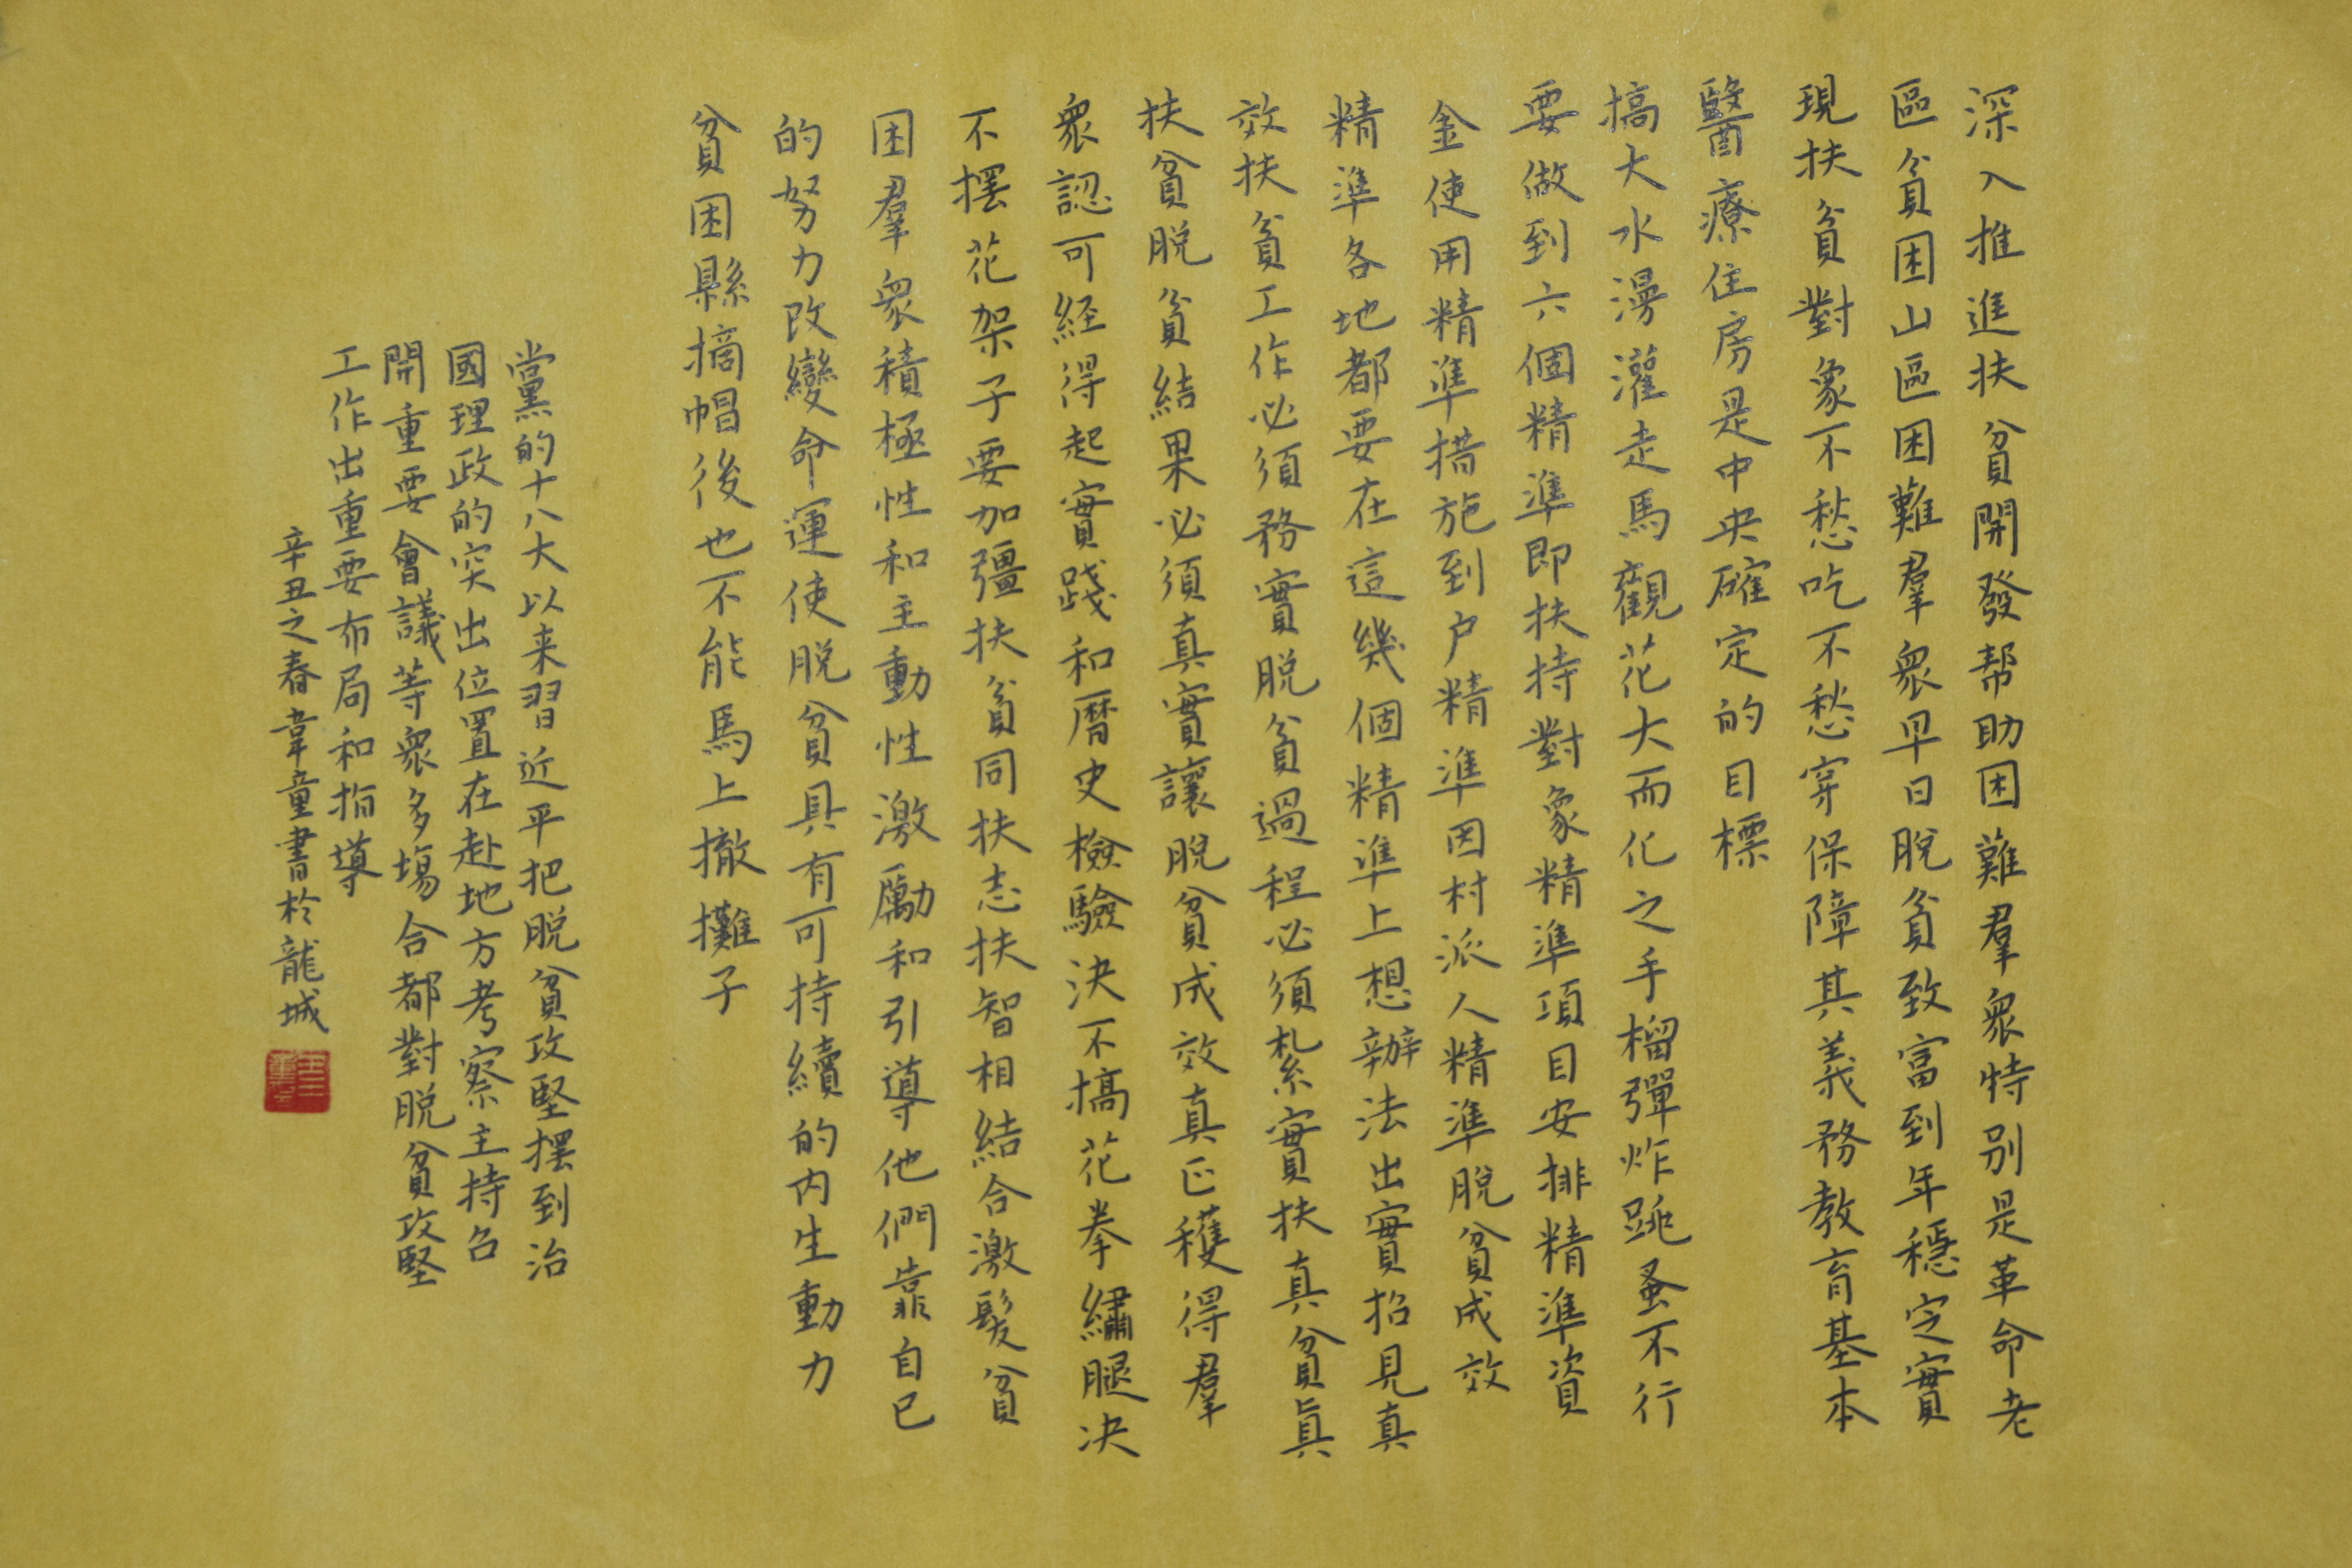 深入推進扶貧開發帮助困難羣衆特别是革命老
區貧困山區困難羣衆早日脫貧致富到年穩定實
現扶貧對象不愁吃不愁穿保障其義務教育基本
醫療住房是中央確定的目標
搞大水漫灌走馬觀花大而化之手榴彈炸跳蚤不行
要做到六個精準即扶持對象精準項目安排精準資
金使用精準措施到户精準因村派人精準脫貧成效
精準各地都要在這幾個精準上想辦法出實招見真
效扶貧工作必須務實脫貧過程必須紮實扶真貧真
扶貧脫貧結果必須真實讓脫貧成效真正穫得羣
衆認可経得起實踐和曆史檢驗決不搞花拳繡腿決
不擺花架子要加彊扶貧同扶志扶智相結合激髮貧
困羣衆積極性和主動性激勵和引導他們靠自己
的努力改變命運使脫貧具有可持續的内生動力
貧困縣摘帽後也不能馬上撤攤子
黨的十八大以来習近平把脫貧攻堅擺到治
國理政的突出位置在赴地方考察主持召
開重要會議等衆多塲合都對脫貧攻堅
工作出重要布局和指導
辛丑之春韋童書於龍城